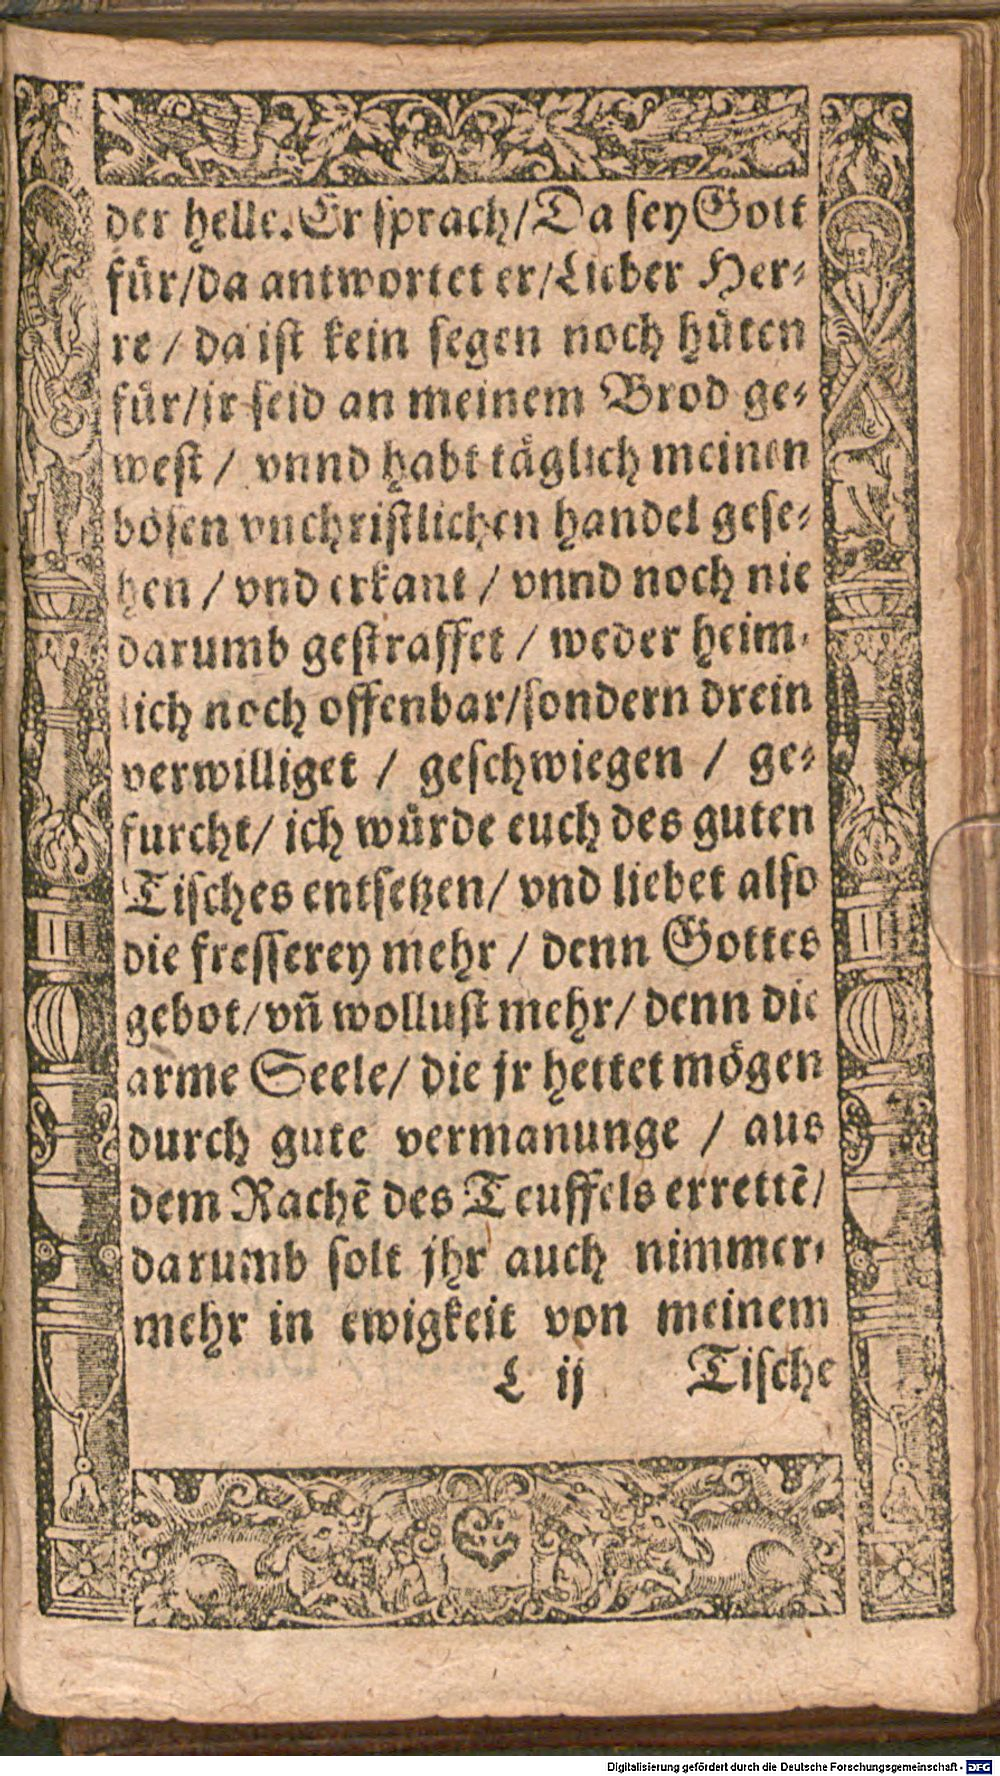 der helle. Er sprach/ Da sey Gott
für/ da antwortet er/ Lieber Her⸗
re / da ist kein segen noch hüten
für/ jr seid an meinem Brod ge⸗
west / vnnd habt täglich meinen
bösen vnchristlichen handel gese⸗
hen / vnd erkant / vnnd noch nie
darumb gestraffet / weder heim⸗
lich noch offenbar/ sondern drein
verwilliget / geschwiegen / ge⸗
furcht/ ich würde euch des guten
Tisches entsetzen/ vnd liebet also
die fresserey mehr / denn Gottes
gebot/ vñ wollust mehr/ denn die
arme Seele/ die jr hettet mögen
durch gute vermanunge / aus
dem Rachẽ des Teuffels errettẽ/
darumb solt jhr auch nimmer⸗
mehr in ewigkeit von meinem
L ij Tische
Digitalisierung gefördert durch die Deutsche Forschungsgemeinschaft - DFG